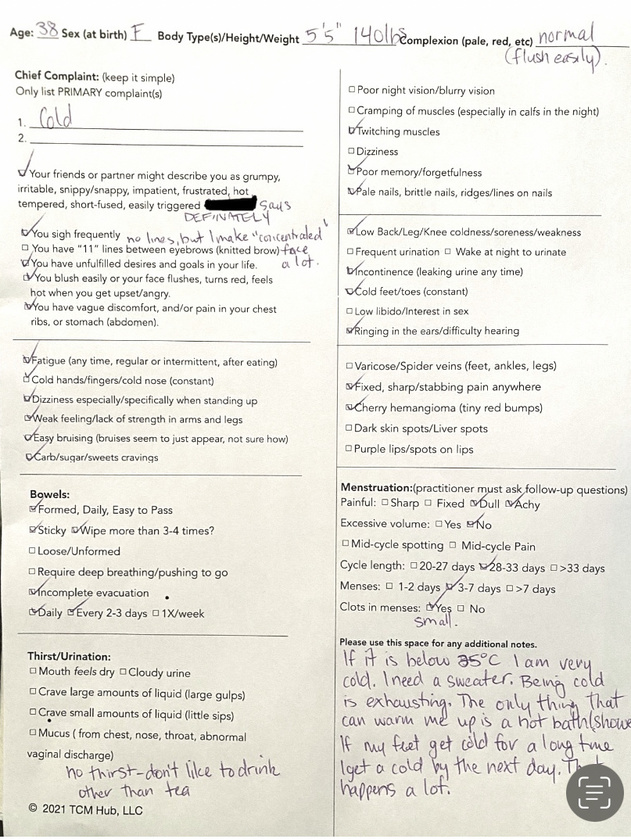 Age: 38 Sex (at birth) F Body Type(s)/Height/Weight 5'5" 140lbs Complexion (pale, red, etc) normal
(flush easily).
Chief Complaint: (keep it simple)
Only list PRIMARY complaint(s)
1. Cold
2.
Your friends or partner might describe you as grumpy,
irritable, snippy/snappy, impatient, frustrated, hot
tempered, short-fused, easily triggered says
DEFINATELY
You sigh frequently no lines, but I make "concentrated"
You have "11" lines between eyebrows (knitted brow) face
You have unfulfilled desires and goals in your life. a lot.
You blush easily or your face flushes, turns red, feels
hot when you get upset/angry.
You have vague discomfort, and/or pain in your chest
ribs, or stomach (abdomen).
Fatigue (any time, regular or intermittent, after eating)
Cold hands/fingers/cold nose (constant)
Dizziness especially/specifically when standing up
Weak feeling/lack of strength in arms and legs
Easy bruising (bruises seem to just appear, not sure how)
Carb/sugar/sweets cravings
Bowels:
Formed, Daily, Easy to Pass
Sticky Wipe more than 3-4 times?
Loose/Unformed
Require deep breathing/pushing to go
Incomplete evacuation
Daily Every 2-3 days 1X/week
Thirst/Urination:
Mouth feels dry Cloudy urine
Crave large amounts of liquid (large gulps)
Crave small amounts of liquid (little sips)
Mucus ( from chest, nose, throat, abnormal
vaginal discharge)
no thirst - don't like to drink
other than tea
© 2021 TCM Hub, LLC
Poor night vision/blurry vision
Cramping of muscles (especially in calfs in the night)
Twitching muscles
Dizziness
Poor memory/forgetfulness
Pale nails, brittle nails, ridges/lines on nails
Low Back/Leg/Knee coldness/soreness/weakness
Frequent urination Wake at night to urinate
Incontinence (leaking urine any time)
Cold feet/toes (constant)
Low libido/Interest in sex
Ringing in the ears/difficulty hearing
Varicose/Spider veins (feet, ankles, legs)
Fixed, sharp/stabbing pain anywhere
Cherry hemangioma (tiny red bumps)
Dark skin spots/Liver spots
Purple lips/spots on lips
Menstruation:(practitioner must ask follow-up questions)
Painful: Sharp Fixed Dull Achy
Excessive volume: Yes No
Mid-cycle spotting Mid-cycle Pain
Cycle length: 20-27 days 28-33 days >33 days
Menses: 1-2 days 3-7 days >7 days
Clots in menses: Yes No
small.
Please use this space for any additional notes.
If it is below 35°C I am very
cold. I need a sweater. Being cold
is exhausting. The only thing that
can warm me up is a hot bath(showe
If my feet get cold for a long time
I get a cold by the next day.
happens a lot.